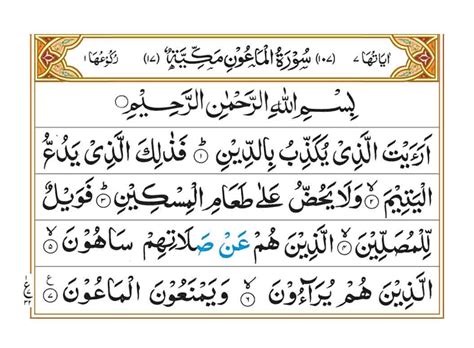 اٰيَاتُهَا ٧ (١٠٧) سُوْرَةُ الْمَاعُوْنِ مَكِّيَّةٌ (١٧) رُكُوْعُهَا ١
بِسْمِ اللّٰهِ الرَّحْمٰنِ الرَّحِيْمِ
اَرَءَيْتَ الَّذِىْ يُكَذِّبُ بِالدِّيْنِ ؕ ١ فَذٰلِكَ الَّذِىْ يَدُعُّ
الْيَتِيْمَ ۙ ٢ وَلَا يَحُضُّ عَلٰى طَعَامِ الْمِسْكِيْنِ ؕ ٣ فَوَيْلٌ
لِّلْمُصَلِّيْنَ ۙ ٤ الَّذِيْنَ هُمْ عَنْ صَلَاتِهِمْ سَاهُوْنَ ۙ ٥
الَّذِيْنَ هُمْ يُرَآءُوْنَ ۙ ٦ وَيَمْنَعُوْنَ الْمَاعُوْنَ ٧ ع